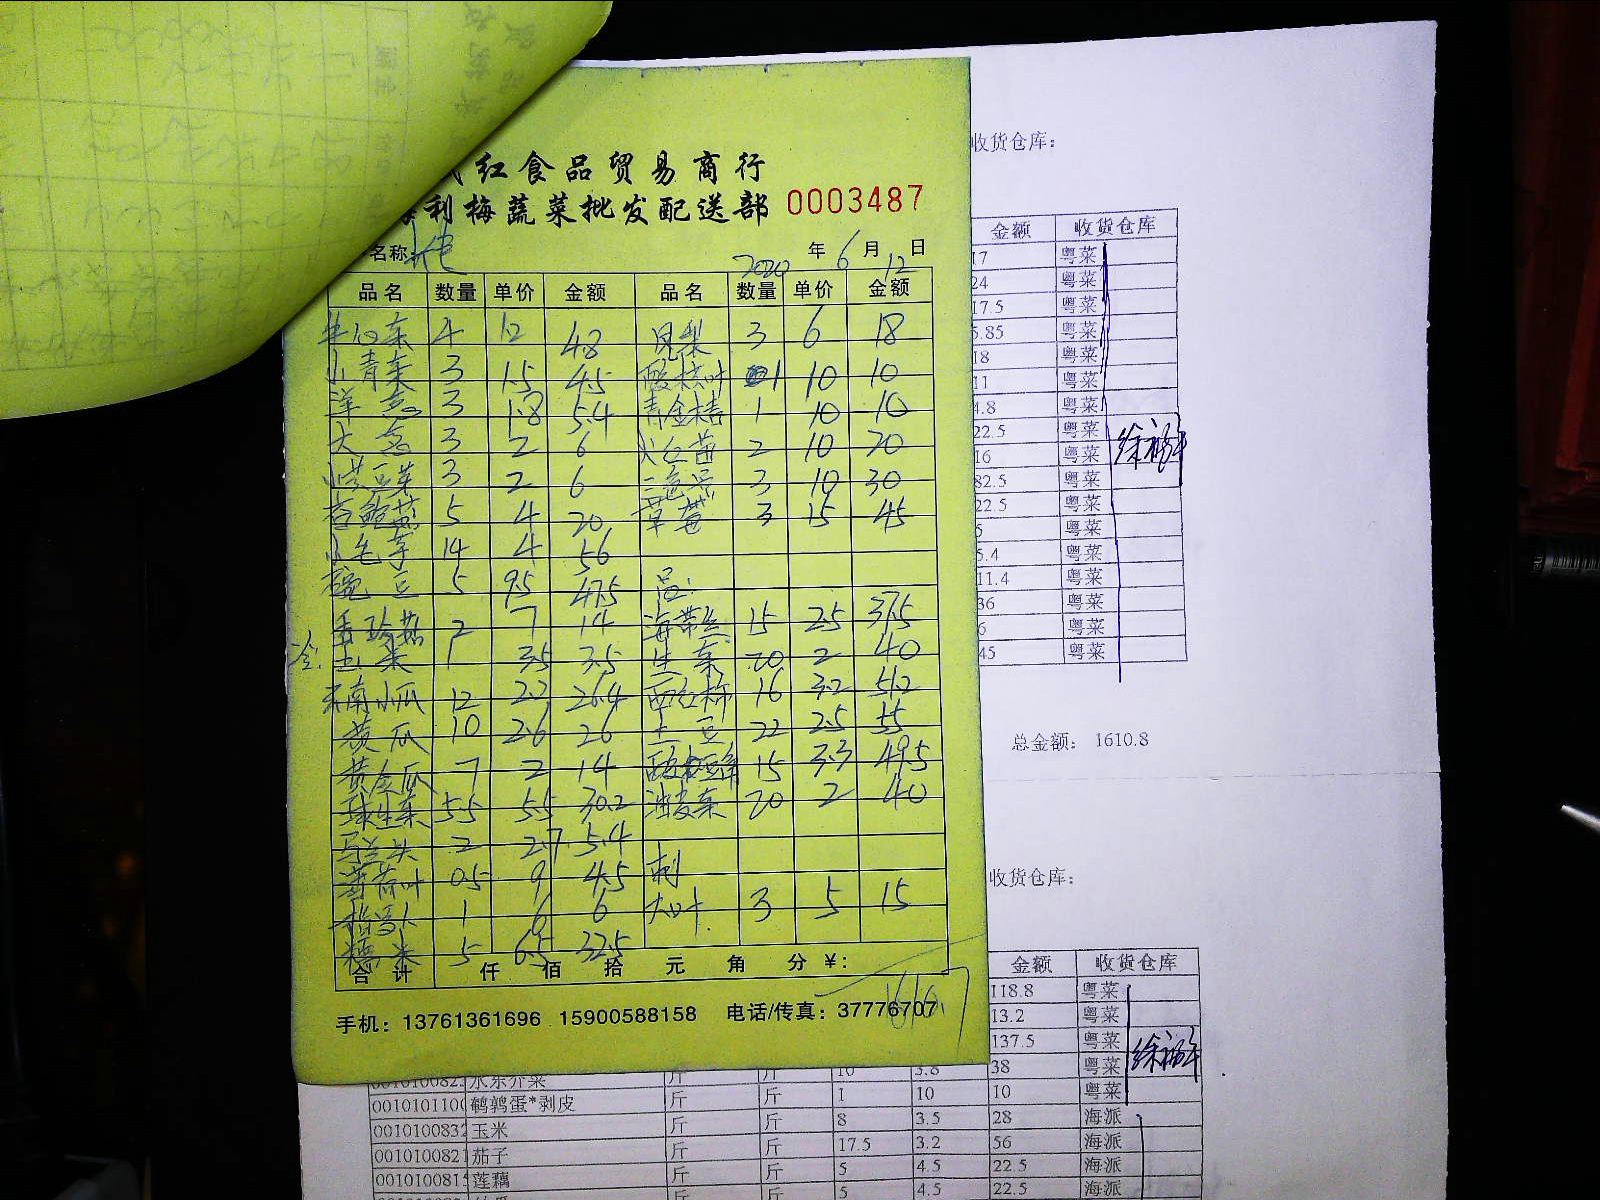 红食品贸易商行
利梅蔬菜批发配送部 0003487
名称:
2020 年 6 月 12 日
品名 数量 单价 金额 品名 数量 单价 金额
牛心菜 4 12 48 凤梨 3 6 18
小青菜 3 1.5 4.5 1 10 10
洋葱 3 1.8 5.4 青金桔 1 10 10
大葱 3 2 6 2 10 20
小黄豆芽 3 2 6 三色堇 3 10 30
杏鲍菇 5 4 20 草莓 3 15 45
小毛芋 14 4 56
豌豆 5 9.5 47.5
2 7 14 海带丝 15 2.5 37.5
玉米 1 3.5 3.5 生菜 20 2 40
云南小瓜 12 2.2 26.4 西红柿 16 3.2 51.2
黄瓜 10 2.6 26 土豆 22 2.5 55
黄金瓜 7 2 14 15 3.3 49.5
球生菜 5.5 5.5 30.2 油麦菜 20 2 40
马兰头 2 2.7 5.4
薄荷叶 0.5 9 4.5 刺
1 6 6 大叶 3 5 15
糯米 5 6.5 32.5
合计 仟 佰 拾 元 角 分 ¥:
手机: 13761361696 15900588158 电话/传真: 37776707
收货仓库:
金额 收货仓库
17 粤菜
24 粤菜
17.5 粤菜
5.85 粤菜
18 粤菜
11 粤菜
4.8 粤菜
22.5 粤菜
16 粤菜
82.5 粤菜
22.5 粤菜
5 粤菜
5.4 粤菜
11.4 粤菜
36 粤菜
6 粤菜
45 粤菜
总金额: 1610.8
收货仓库:
金额 收货仓库
118.8 粤菜
13.2 粤菜
137.5 粤菜
水东芥菜 斤 斤 10 3.8 38 粤菜
0010101100 鹌鹑蛋*剥皮 斤 斤 1 10 10 粤菜
001010083 玉米 斤 斤 8 3.5 28 海派
001010082 茄子 斤 斤 17.5 3.2 56 海派
001010081 莲藕 斤 斤 5 4.5 22.5 海派
斤 斤 5 4.5 22.5 海派